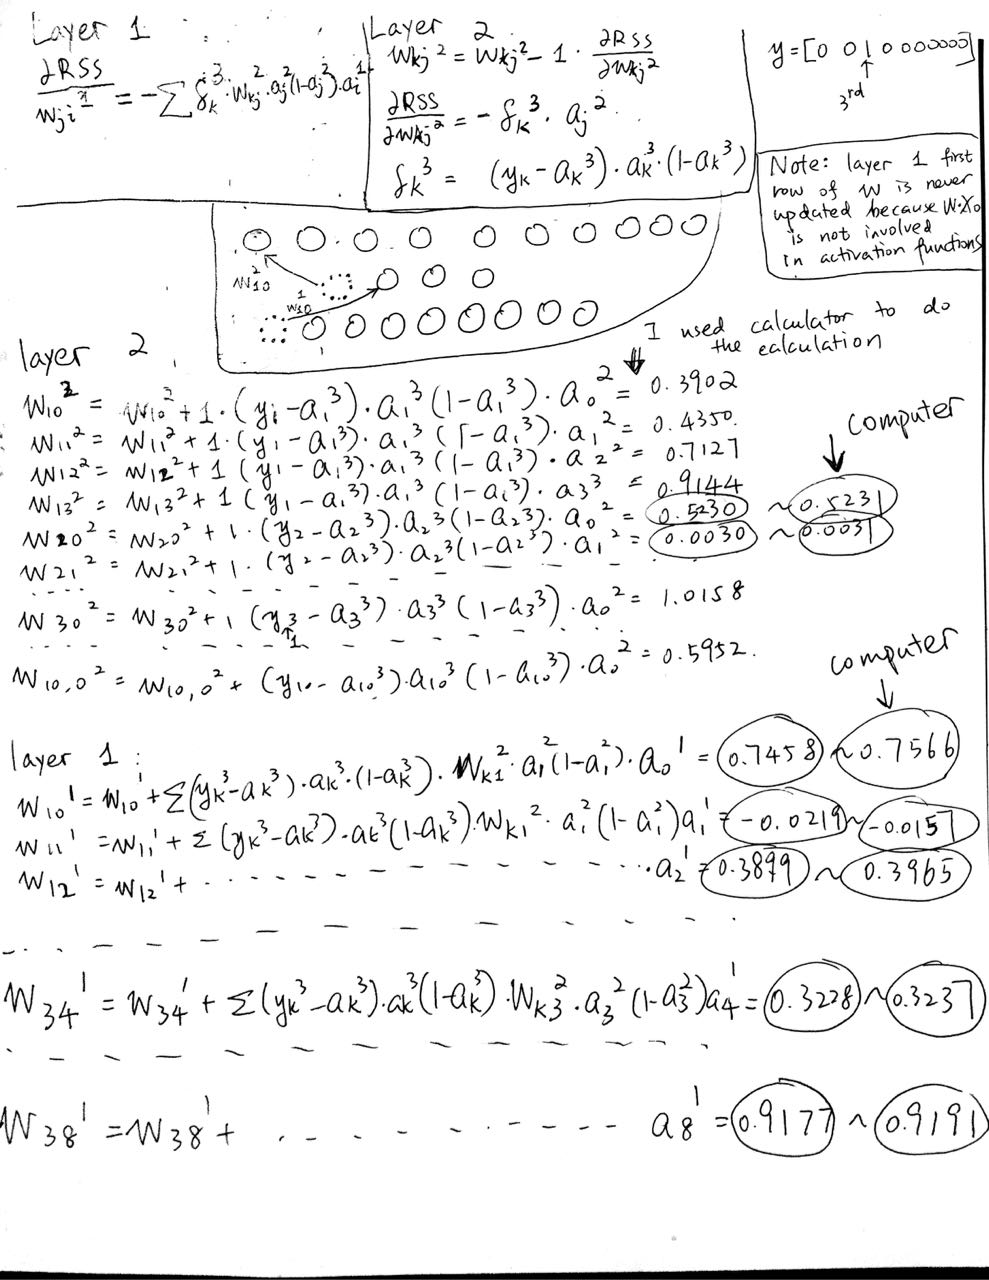 Layer 1
∂RSS / w_ji^1 = -∑ δ_k^3 · w_kj^2 · a_j^2 (1-a_j^2) · a_i^1
Layer 2
w_kj^2 = w_kj^2 - 1 · ∂RSS / ∂w_kj^2
∂RSS / ∂w_kj^2 = - δ_k^3 · a_j^2
δ_k^3 = (y_k - a_k^3) · a_k^3 · (1-a_k^3)
y = [0 0 1 0 000000]
3rd
Note: layer 1 first
row of W is never
updated because W·X₀
is not involved
in activation functions
w_10^2
w_10^1
I used calculator to do
the calculation
layer 2
w_10^2 = w_10^2 + 1 · (y_1 - a_1^3) · a_1^3 (1-a_1^3) · a_0^2 = 0.3902
w_11^2 = w_11^2 + 1 · (y_1 - a_1^3) · a_1^3 (1-a_1^3) · a_1^2 = 0.4350
w_12^2 = w_12^2 + 1 (y_1 - a_1^3) · a_1^3 (1-a_1^3) · a_2^2 = 0.7127
w_13^2 = w_13^2 + 1 (y_1 - a_1^3) · a_1^3 (1-a_1^3) · a_3^3 = 0.9144
computer
w_20^2 = w_20^2 + 1 · (y_2 - a_2^3) · a_2^3 (1-a_2^3) · a_0^2 = 0.5230 ~ 0.5231
w_21^2 = w_21^2 + 1 · (y_2 - a_2^3) · a_2^3 (1-a_2^3) · a_1^2 = 0.0030 ~ 0.0031
w_30^2 = w_30^2 + 1 (y_3 - a_3^3) · a_3^3 (1-a_3^3) · a_0^2 = 1.0158
1
w_10,0^2 = w_10,0^2 + (y_10 - a_10^3) · a_10^3 (1-a_10^3) · a_0^2 = 0.5952
computer
layer 1 :
w_10^1 = w_10^1 + ∑(y_k^3 - a_k^3) · a_k^3 · (1-a_k^3) · W_k1^2 · a_1^2 (1-a_1^2) · a_0^1 = 0.7458 ~ 0.7566
w_11^1 = w_11^1 + ∑ (y_k^3 - a_k^3) · a_k^3 (1-a_k^3) · W_k1^2 · a_1^2 (1-a_1^2) a_1^1 = -0.0219 ~ -0.0157
w_12^1 = w_12^1 + · - - - - - - - - - - - · · · a_2^1 = 0.3899 ~ 0.3965
W_34^1 = W_34^1 + ∑(y_k^3 - a_k^3) · a_k^3 (1-a_k^3) · W_k3^2 · a_3^2 (1-a_3^2) a_4^1 = 0.3228 ~ 0.3237
W_38^1 = W_38^1 + · - - - - - - - - - - a_8^1 = 0.9177 ~ 0.9191